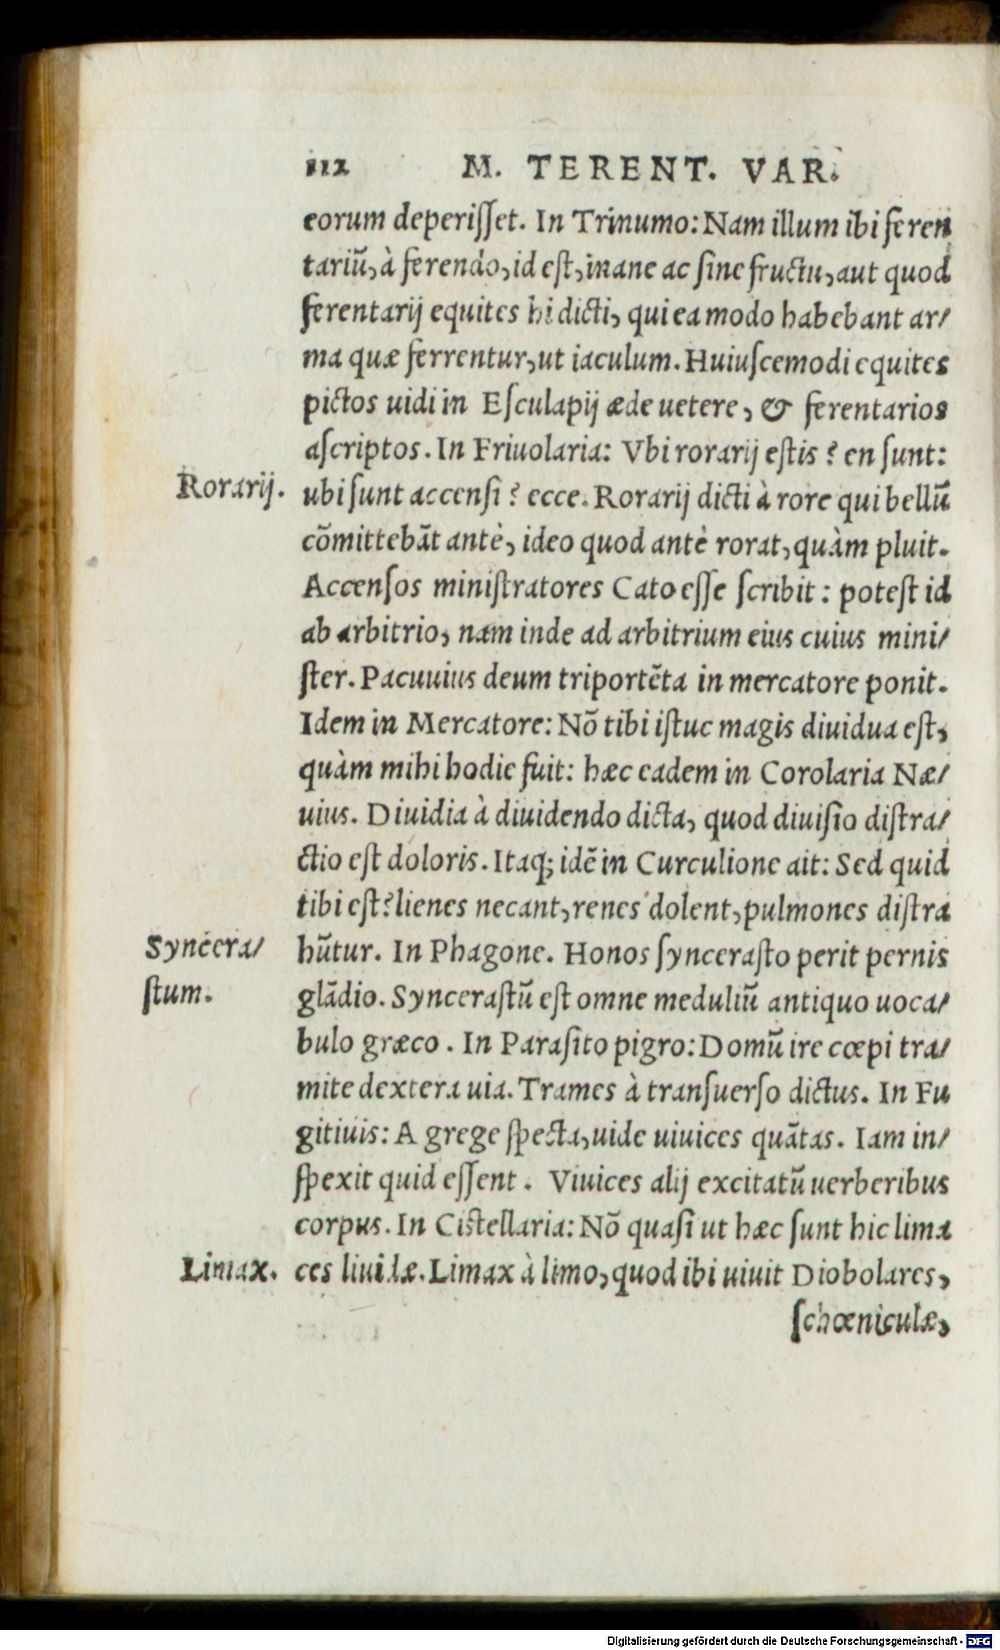 112 M. TERENT. VAR.
eorum deperiſſet. In Trinumo: Nam illum ibi feren
tariũ, à ferendo, id eſt, inane ac ſine fructu, aut quod
ferentarij equites hi dicti, qui ea modo habebant ar/
ma quæ ferrentur, ut iaculum. Huiuſcemodi equites
pictos uidi in Eſculapij æde uetere, & ferentarios
aſcriptos. In Friuolaria: Vbi rorarij eſtis? en ſunt:
Rorarij. ubi ſunt accenſi? ecce. Rorarij dicti à rore qui bellũ
cõmittebãt antè, ideo quod antè rorat, quàm pluit.
Accenſos miniſtratores Cato eſſe ſcribit: poteſt id
ab arbitrio, nam inde ad arbitrium eius cuius mini/
ſter. Pacuuius deum triportẽta in mercatore ponit.
Idem in Mercatore: Nõ tibi iſtuc magis diuidua eſt,
quàm mihi hodie fuit: hæc eadem in Corolaria Næ/
uius. Diuidia à diuidendo dicta, quod diuiſio diſtra/
ctio eſt doloris. Itaq; idẽ in Curculione ait: Sed quid
tibi eſt? lienes necant, renes dolent, pulmones diſtra
Syncera/ hũtur. In Phagone. Honos ſynceraſto perit pernis
ſtum. glãdio. Synceraſtũ eſt omne meduliũ antiquo uoca/
bulo græco. In Paraſito pigro: Domũ ire cœpi tra/
mite dextera uia. Trames à tranſuerſo dictus. In Fu
gitiuis: A grege ſpecta, uide uiuices quãtas. Iam in/
ſpexit quid eſſent. Viuices alij excitatũ uerberibus
corpus. In Ciſtellaria: Nõ quaſi ut hæc ſunt hic lima
Limax. ces liuidæ. Limax à limo, quod ibi uiuit Diobolares,
ſchœniculæ,
Digitalisierung gefördert durch die Deutsche Forschungsgemeinschaft - DFG